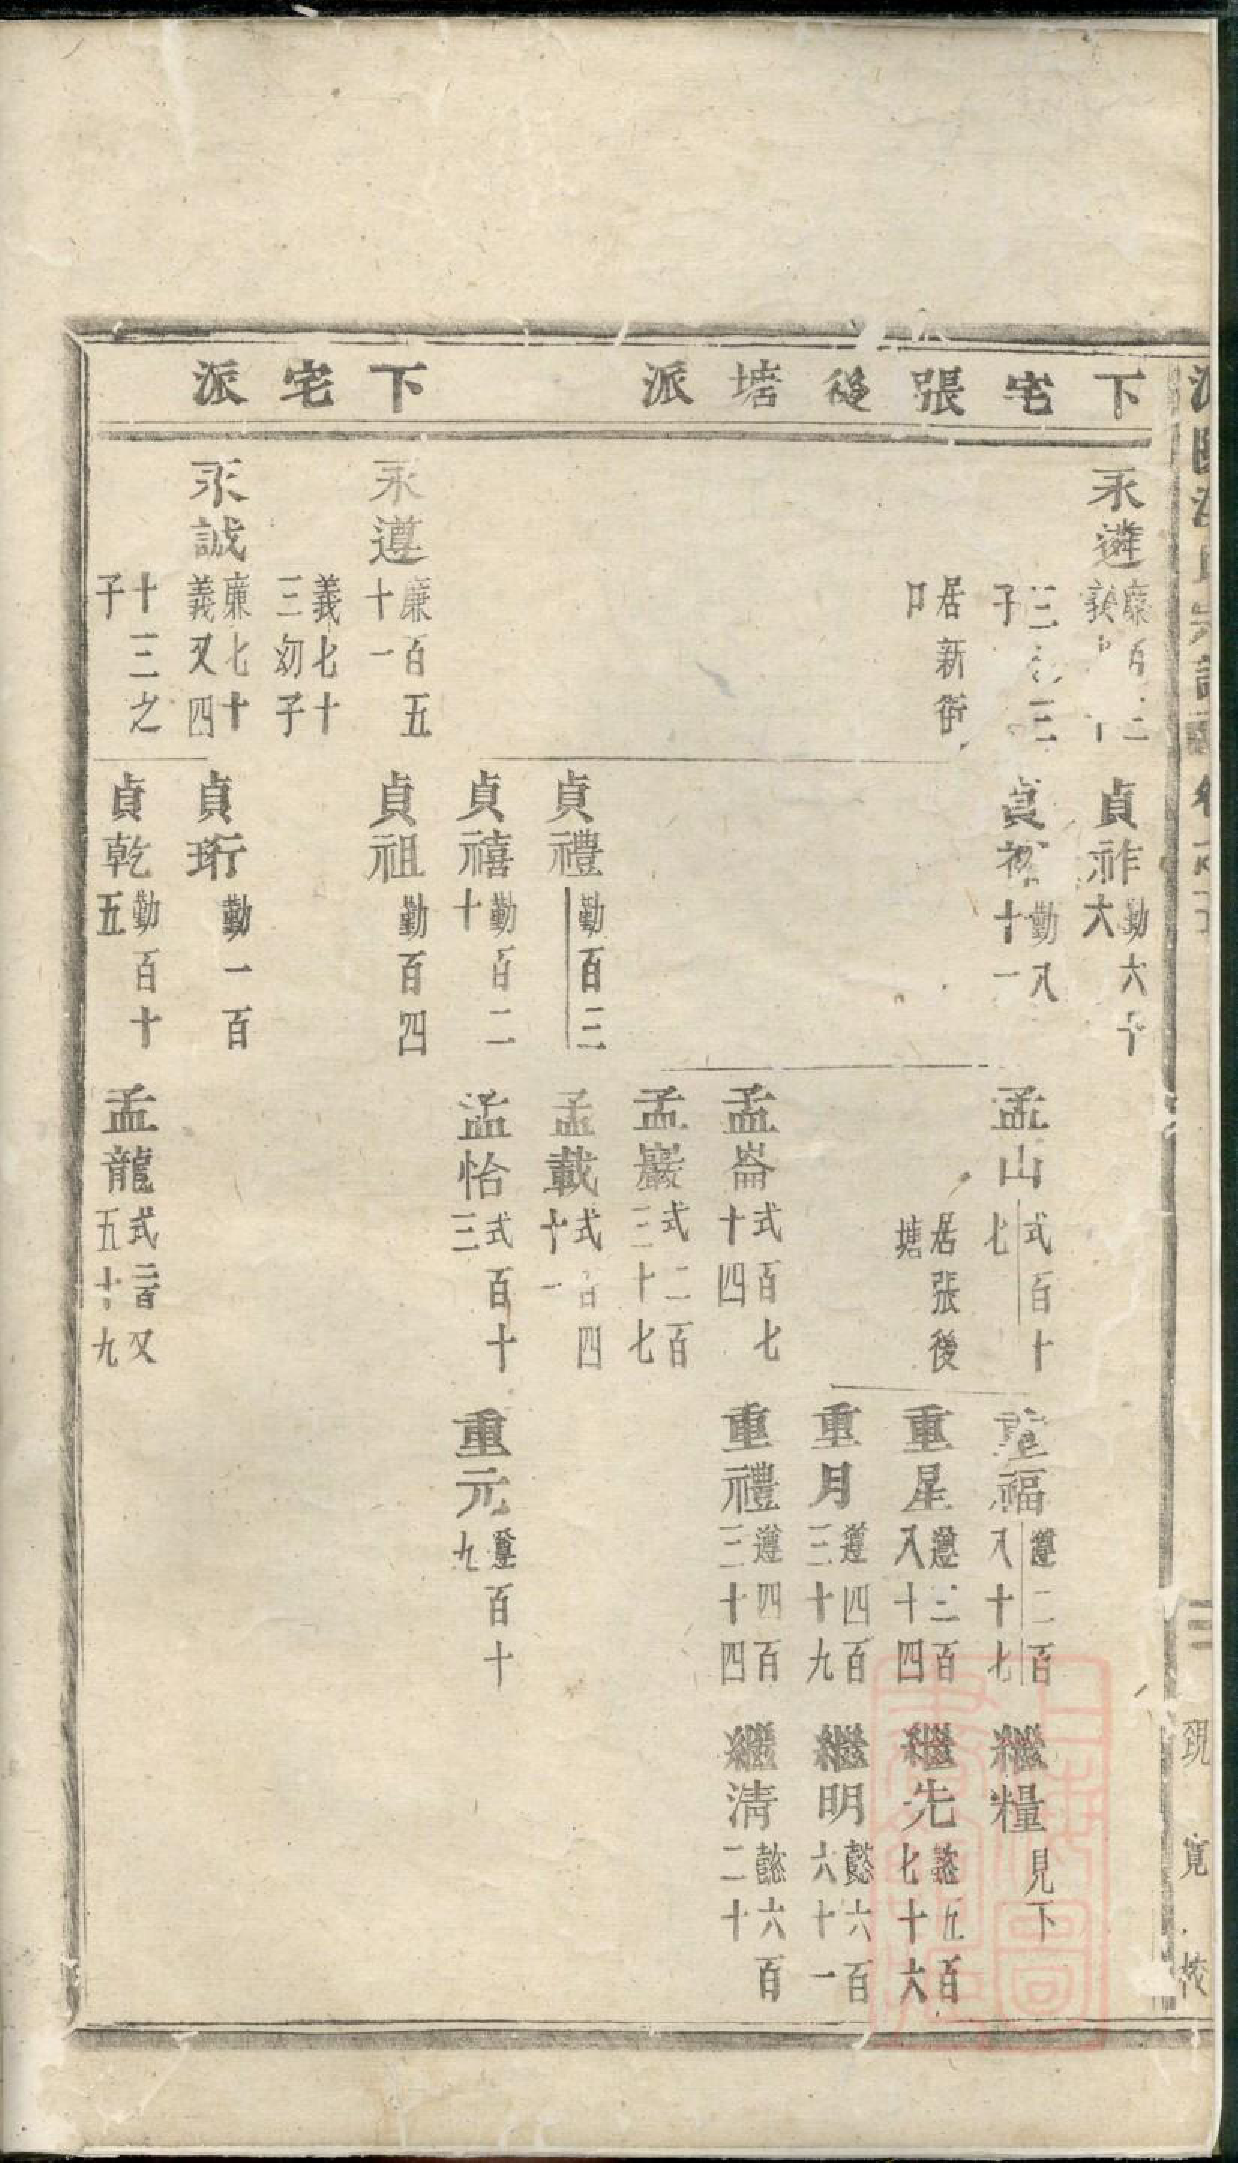 下宅張後塘派
下宅派
永遴
三
三
子
居新街
口
永遵
廉百五
十一
義七十
三幼子
永誠
廉七十
義又四
十三之
子
貞祚
勤六十
六
貞
勤八
十一
貞禮
勤百三
貞禧
勤百二
十
貞祖
勤百四
貞珩
勤一百
貞乾
勤百十
五
孟山
式百十
七
居張後
塘
孟崙
式百七
十四
孟巖
式二百
三十七
孟載
式百四
十一
孟怡
式百十
三
孟龍
式二百又
五十九
重福
遵二百
八十七
重星
遵三百
八十四
重月
遵四百
三十九
重禮
遵四百
三十四
重元
遵百十
九
繼糧
見下
繼先
懿五百
七十六
繼明
懿六百
六十一
繼清
懿六百
二十
二
覓
校
上海圖書館藏